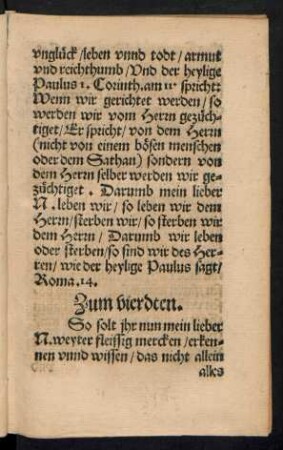 vnglück/leben vnnd todt/armut
vnd reichthumb/Vnd der heylige
Paulus 1. Corinth. am 11. spricht:
Wenn wir gerichtet werden/so
werden wir vom Herrn gezüch-
tiget/Er spricht/von dem Herrn
(nicht von einem bösen menschen
oder dem Sathan) sondern von
dem Herrn selber werden wir ge-
züchtiget. Darumb mein lieber
N. leben wir/so leben wir dem
Herrn/sterben wir/so sterben wir
dem Herrn/Darumb wir leben
oder sterben/so sind wir des Her-
ren/wie der heylige Paulus sagt/
Roma. 14.
Zum vierdten.
So solt jhr nun mein lieber
N. weyter fleissig mercken/erken-
nen vnnd wissen/das nicht allein
alles